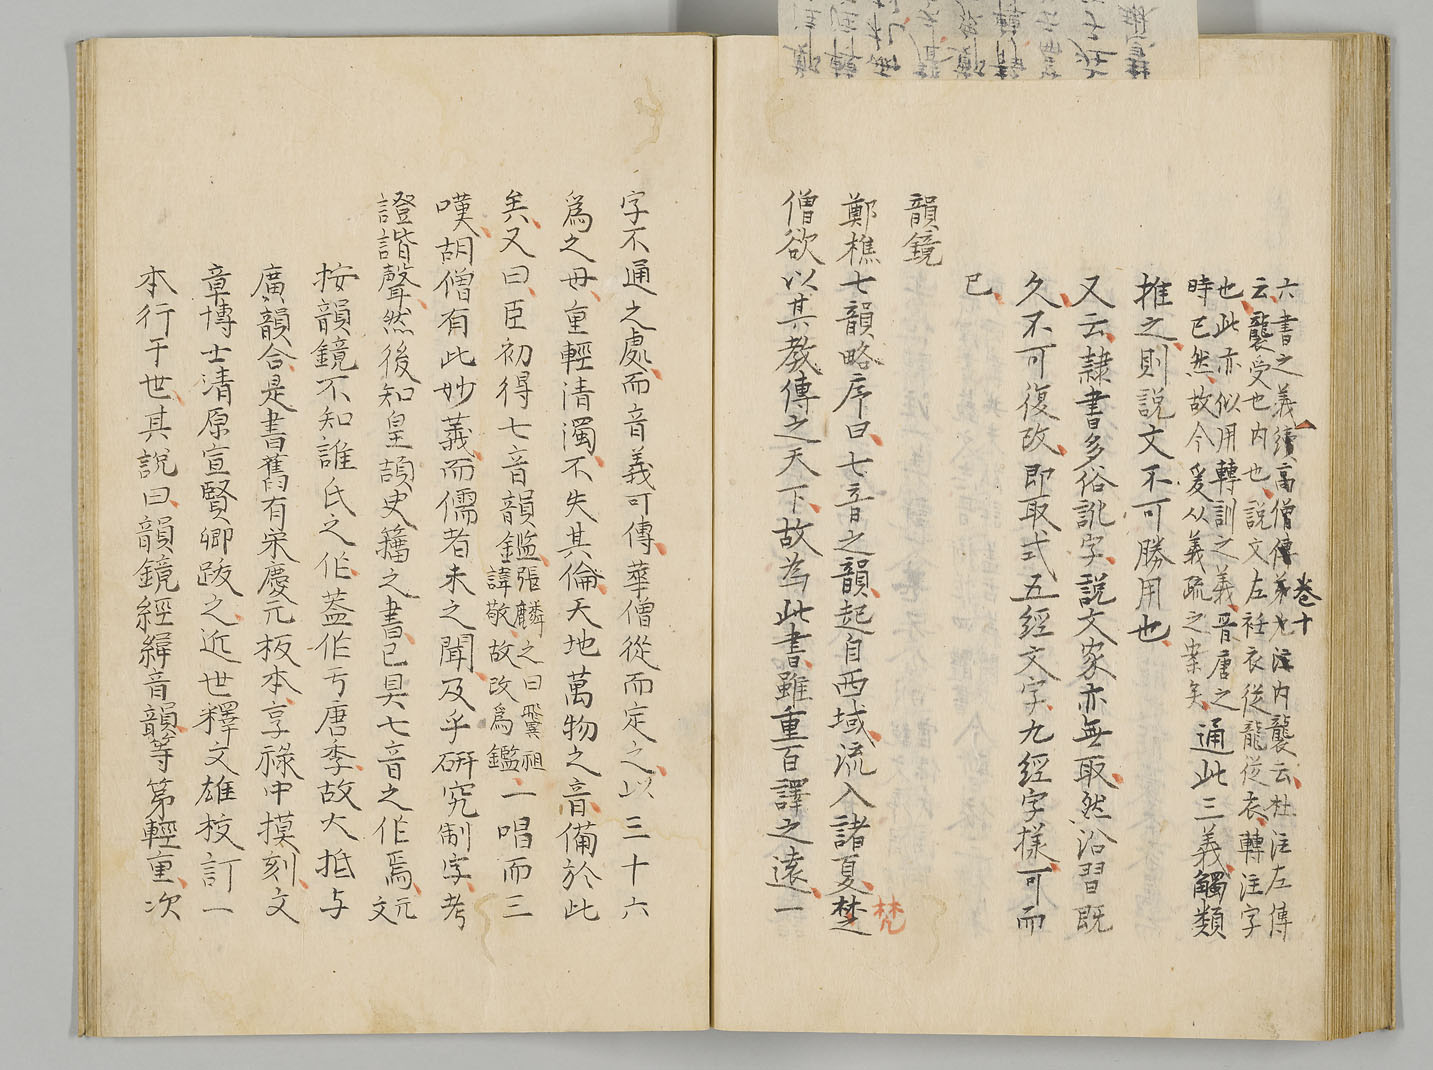 六書之義續高僧傳第九法內襲云杜注左傳
卷十
云襲受也內也說文左衽衣從龍從衣轉注字
也此亦似用轉訓之義晉唐之
時已然故今爰从義疏之案矣
通此三義觸類
推之則説文不可勝用也
又云隷書多俗訛字説文家亦無取然沿習既
久不可復改即取式五經文字九經字樣可而
已
韻鏡
鄭樵七韻略序曰七音之韻起自西域流入諸夏梵
梵
僧欲以其教傳之天下故為此書雖重百譯之遠一
字不通之處而音義可傳華僧從而定之以三十六
爲之毋重輕清濁不失其倫天地萬物之音備於此
矣又曰臣初得七音韻鑑
張麟之曰翼祖
諱敬故改爲鑑
一唱而三
嘆胡僧有此妙義而儒者未之聞及乎研究制字考
證諧聲然後知皇頡史籒之書已具七音之作焉
文元
按韻鏡不知誰氏之作蓋作于唐季故大抵与
廣韻合是書舊有宋慶元板本享祿中摸刻文
章博士清原宣賢卿跋之近世釋文雄校訂一
本行于世其説曰韻鏡經緯音韻等第輕重次